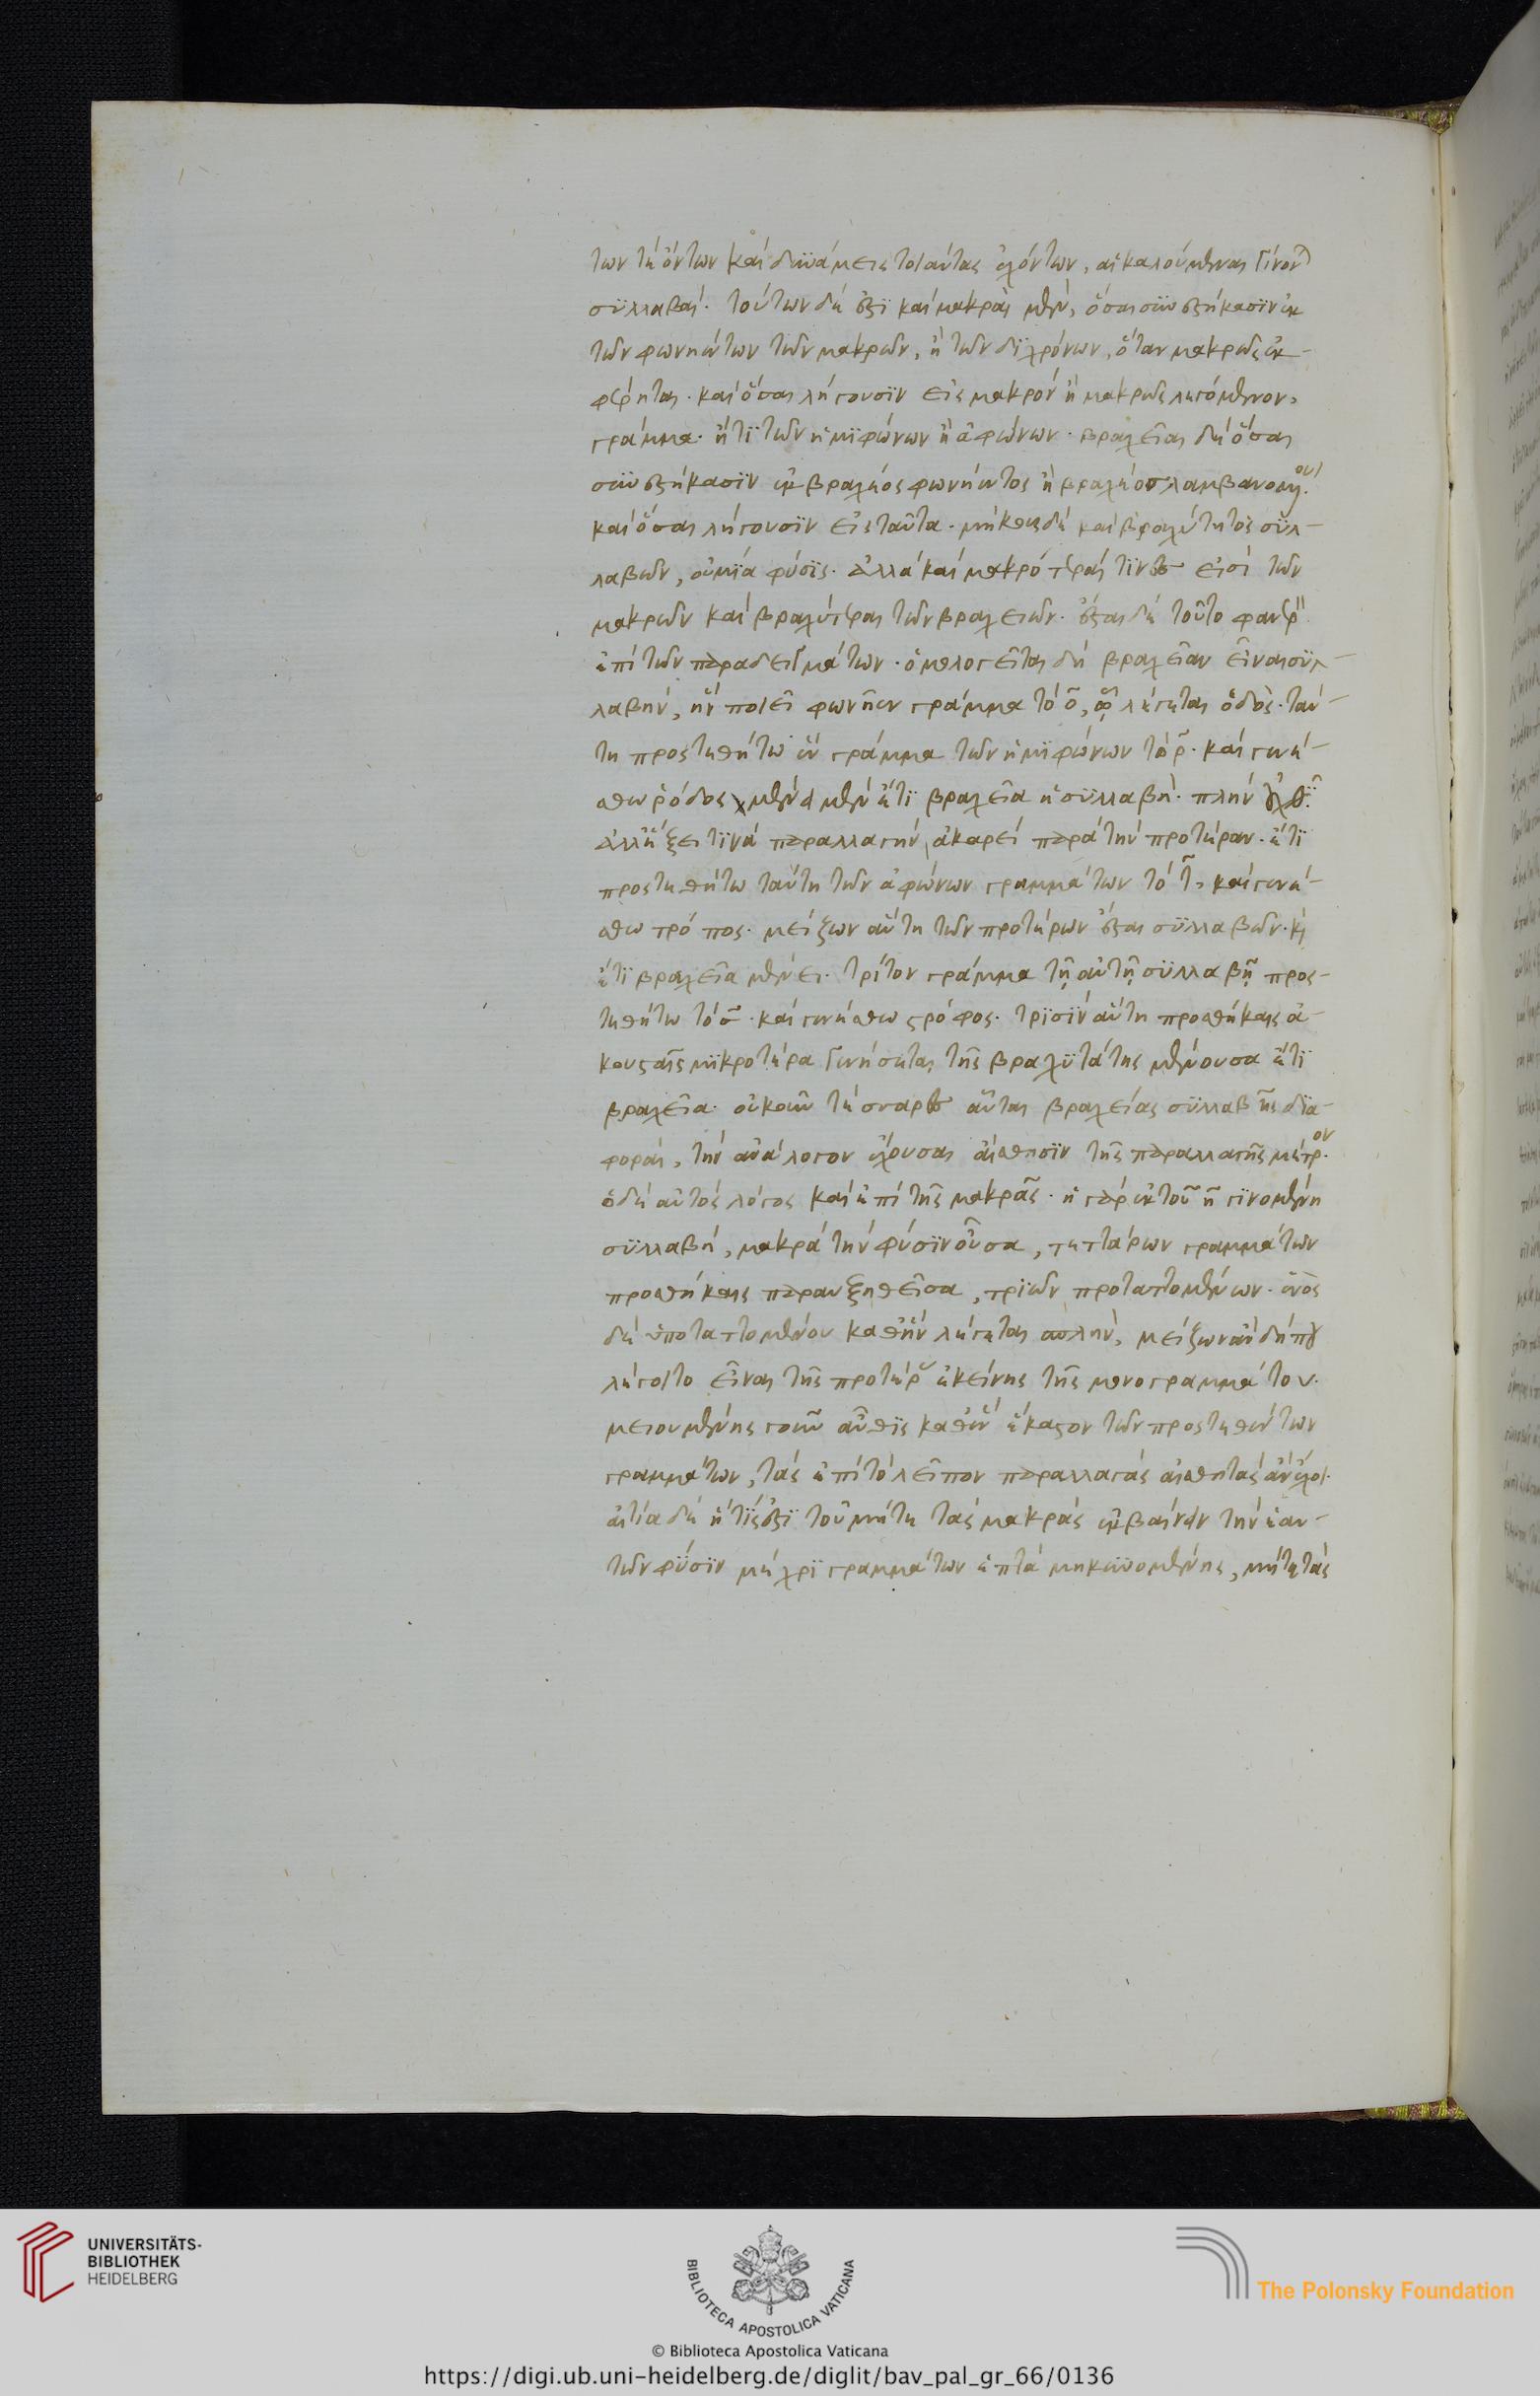 των τε ὄντων καὶ δυνάμεις τοιαύτας ἐχόντων, αἱ καλούμεναι γίνονται
συλλαβαί. τούτων δέ ἐστι καὶ μακραὶ μὲν, ὅσαι συνεστήκασιν ἐκ
τῶν φωνηέντων τῶν μακρῶν, ἢ τῶν διχρόνων, ὅταν μακρῶς ἐκ-
φέρηται. καὶ ὅσαι λήγουσιν εἰς μακρὸν ἢ μακρῶς λεγόμενον,
γράμμα. ἤ τι τῶν ἡμιφώνων ἢ ἀφώνων. βραχεῖαι δὲ ὅσαι
συνεστήκασιν ἐκ βραχέος φωνήεντος ἢ βραχέος λαμβανομένου.
καὶ ὅσαι λήγουσιν εἰς ταῦτα. μήκους δὲ καὶ βραχύτητος συλ-
λαβῶν, οὐ μία φύσις. ἀλλὰ καὶ μακρότεραί τινες εἰσὶ τῶν
μακρῶν καὶ βραχύτεραι τῶν βραχειῶν. ἔσται δὲ τοῦτο φανερὸν
ἐπὶ τῶν παραδειγμάτων. ὁμολογεῖται δὴ βραχεῖαν εἶναι συλ-
λαβὴν, ἣν ποιεῖ φωνῆεν γράμμα τὸ ο, ᾧ λέγεται ὁδὸς. ταύ-
τη προστεθήτω ἓν γράμμα τῶν ἡμιφώνων τὸ ρ. καὶ γενέ-
σθω ῥόδος μένει μὲν ἔτι βραχεῖα ἡ συλλαβὴ. πλὴν οὐχ ὁμοίως
ἀλλ' ἕξει τινὰ παραλλαγὴν ἀκαρεῖ παρὰ τὴν προτέραν. ἔτι
προστεθήτω ταύτη τῶν ἀφώνων γραμμάτων τὸ τ, καὶ γενέ-
σθω τρόπος. μείζων αὕτη τῶν προτέρων ἔσται συλλαβῶν. καὶ
ἔτι βραχεῖα μένει. τρίτον γράμμα τῇ αὐτῇ συλλαβῇ προσ-
τεθήτω τὸ σ. καὶ γενέσθω στρόφος. τρισὶν αὕτη προσθήκαις ἀ-
κουσταῖς μικροτέρα γενήσεται τῆς βραχυτάτης μένουσα ἔτι
βραχεῖα. οὐκοῦν τέσσαρες αὗται βραχείας συλλαβῆς δια-
φοραὶ, τὴν ἀνάλογον ἔχουσαι αἴσθησιν τῆς παραλλαγῆς μέτρον.
ὁ δὲ αὐτὸς λόγος καὶ ἐπὶ τῆς μακρᾶς. ἡ γὰρ ἐκ τοῦ η γινομένη
συλλαβὴ, μακρὰ τὴν φύσιν οὖσα, τεττάρων γραμμάτων
προσθήκαις παραυξηθεῖσα, τριῶν προταττομένων. ἑνὸς
δὲ ὑποταττομένου καθ' ἣν λέγεται σπλὴν, μείζων ἂν δήπου
λέγοιτο εἶναι τῆς προτέρας ἐκείνης τῆς μονογραμμάτου.
μειουμένης γοῦν αὖθις καθ' ἓν ἕκαστον τῶν προστεθέντων
γραμμάτων, τὰς ἐπὶ τὸ λεῖπον παραλλαγὰς αἰσθητὰς ἂν ἔχοι.
αἰτία δὲ ἥτις ἐστὶ τοῦ μήτε τὰς μακρὰς ἐκβαίνειν τὴν ἑαυ-
τῶν φύσιν μέχρι γραμμάτων ἑπτὰ μηκυνομένης, μήτε τὰς
UNIVERSITÄTS-
BIBLIOTHEK
HEIDELBERG
BIBLIOTECA APOSTOLICA VATICANA
The Polonsky Foundation
© Biblioteca Apostolica Vaticana
https://digi.ub.uni-heidelberg.de/diglit/bav_pal_gr_66/0136